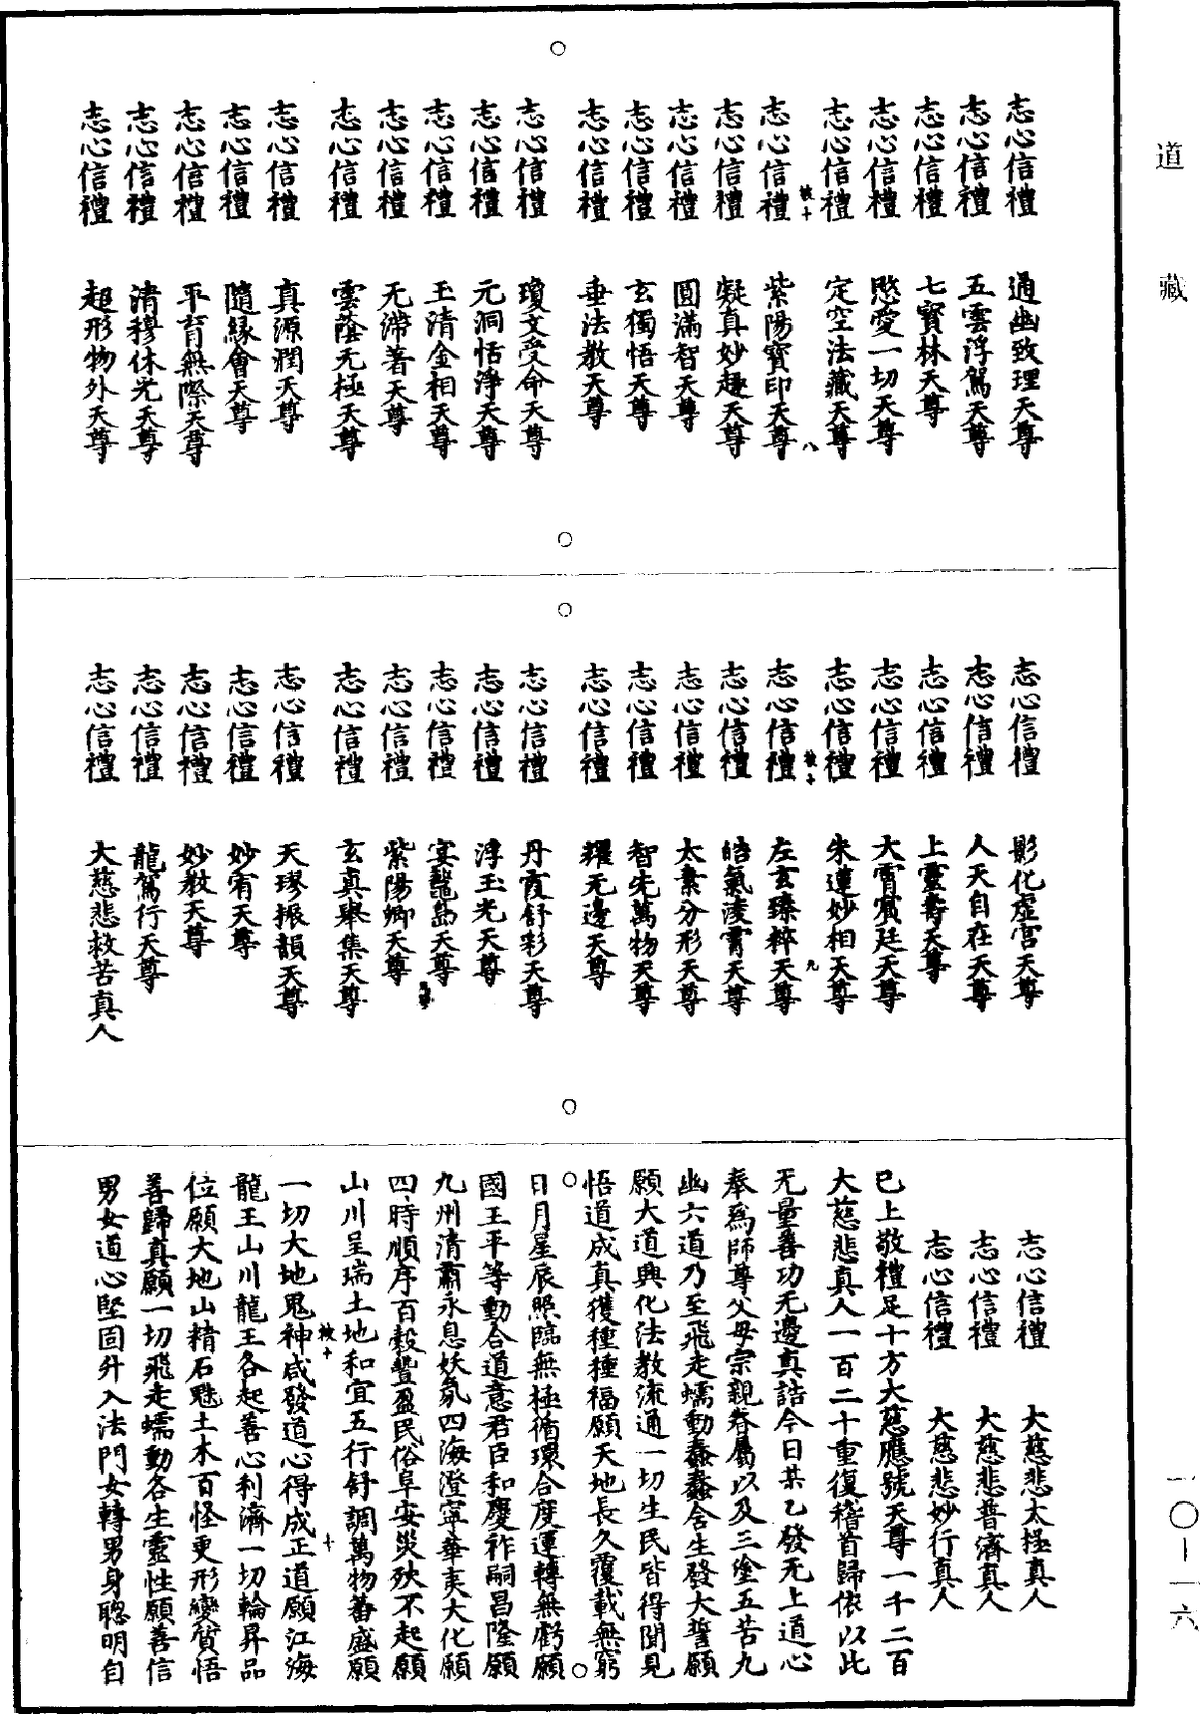 道藏
志心信禮 通幽致理天尊
志心信禮 五雲浮駕天尊
志心信禮 七寶林天尊
志心信禮 愍愛一切天尊
志心信禮 定空法藏天尊
八
志心信禮 紫陽寶印天尊
志心信禮 凝真妙趣天尊
志心信禮 圓滿智天尊
志心信禮 玄獨悟天尊
志心信禮 垂法教天尊
志心信禮 瓊文受命天尊
志心信禮 元洞恬淨天尊
志心信禮 玉清金相天尊
志心信禮 无滯著天尊
志心信禮 雲蔭无極天尊
志心信禮 真源潤天尊
志心信禮 隨緣會天尊
志心信禮 平育無際天尊
志心信禮 清穆休光天尊
志心信禮 超形物外天尊
志心信禮 影化虛宮天尊
志心信禮 人天自在天尊
志心信禮 上靈壽天尊
志心信禮 大霄賓廷天尊
志心信禮 朱蓮妙相天尊
九
志心信禮 左玄臻粹天尊
志心信禮 皓氣凌霄天尊
志心信禮 太素分形天尊
志心信禮 智先萬物天尊
志心信禮 耀无邊天尊
志心信禮 丹霞舒彩天尊
志心信禮 浮玉光天尊
志心信禮 宴鼇島天尊
志心信禮 紫陽卿天尊
志心信禮 玄真舉集天尊
志心信禮 天璆振韻天尊
志心信禮 妙宥天尊
志心信禮 妙教天尊
志心信禮 龍駕行天尊
志心信禮 大慈悲救苦真人
志心信禮 大慈悲太極真人
志心信禮 大慈悲普濟真人
志心信禮 大慈悲妙行真人
已上敬禮足十方大慈應號天尊一千二百
大慈悲真人一百二十重復稽首歸依以此
无量善功无邊真誥今日某乙發无上道心
奉為師尊父母宗親眷屬以及三塗五苦九
幽六道乃至飛走蠕動蠢蠢含生發大誓願
願大道興化法教流通一切生民皆得聞見
悟道成真獲種種福願天地長久覆載無窮
日月星辰照臨無極循環合度運轉無虧願
國王平等動合道意君臣和慶祚嗣昌隆願
九州清肅永息妖氛四海澄寧華夷大化願
四時順序百穀豐盈民俗阜安災殃不起願
山川呈瑞土地和宜五行舒調萬物蕃盛願
十
一切大地鬼神咸發道心得成正道願江海
龍王山川龍王各起善心利濟一切輪昇品
位願大地山精石魅土木百怪更形變質悟
善歸真願一切飛走蠕動各生靈性願善信
男女道心堅固升入法門女轉男身聰明自
一〇—一六